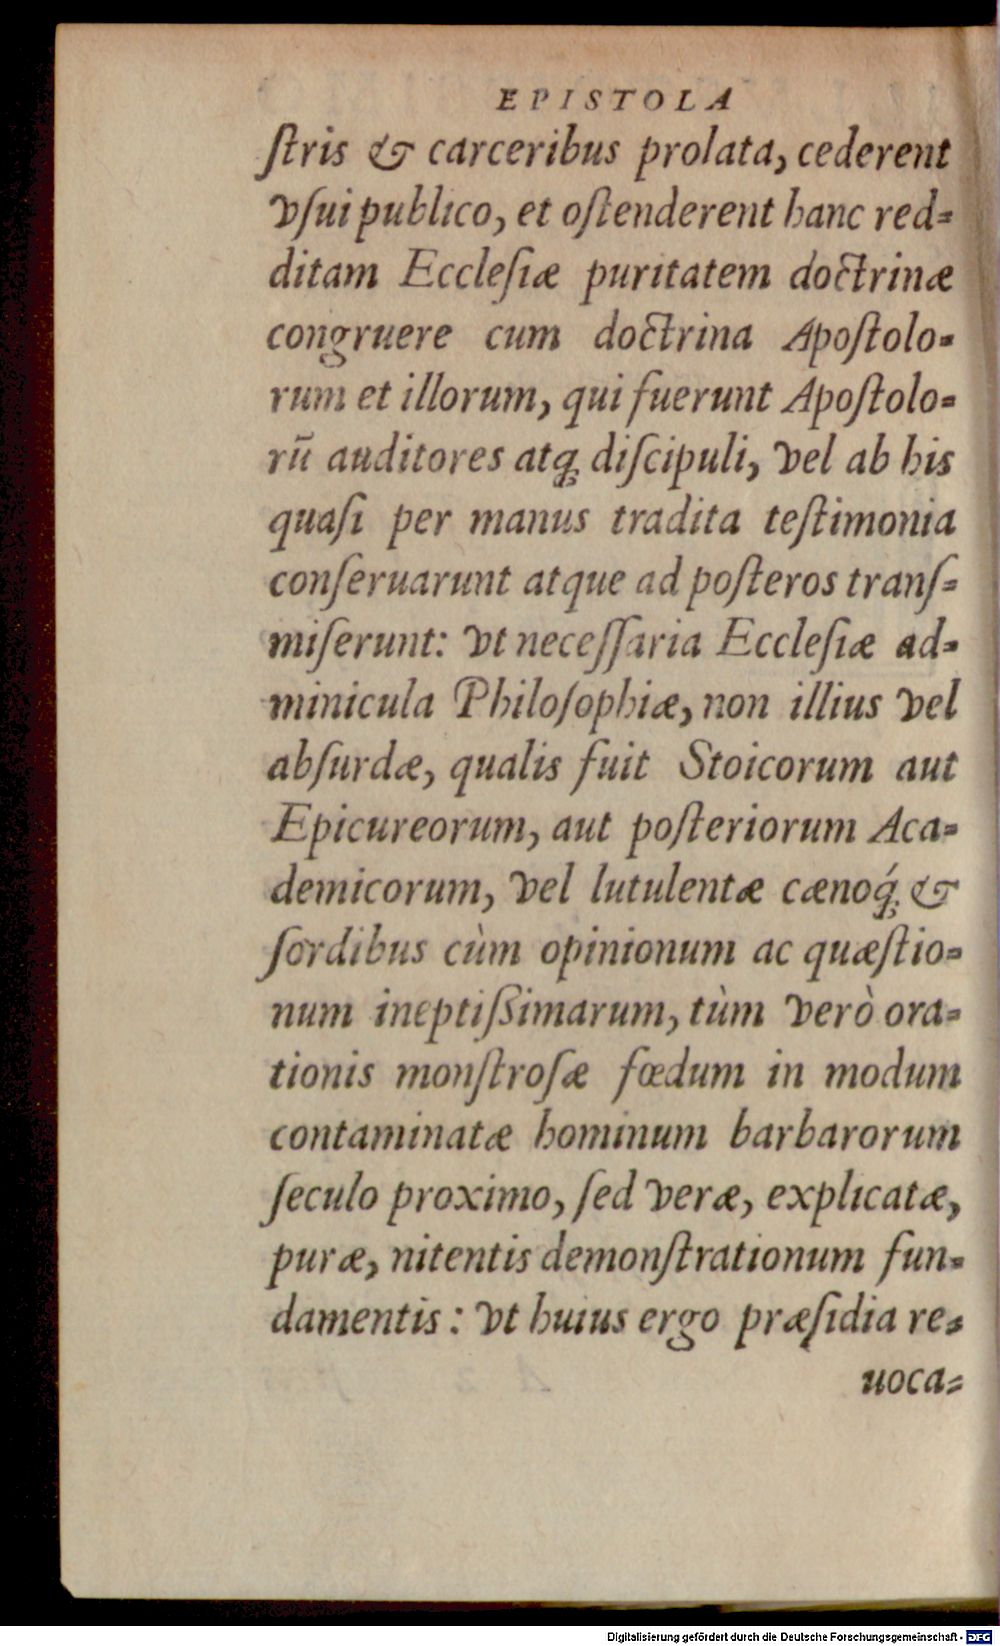 EPISTOLA
ſtris & carceribus prolata, cederent
vſui publico, et oſtenderent hanc red-
ditam Eccleſiæ puritatem doctrinæ
congruere cum doctrina Apoſtolo-
rum et illorum, qui fuerunt Apoſtolo-
rū auditores atq; diſcipuli, vel ab his
quaſi per manus tradita teſtimonia
conſeruarunt atque ad poſteros tranſ-
miſerunt: vt neceſſaria Eccleſiæ ad-
minicula Philoſophiæ, non illius vel
abſurdæ, qualis fuit Stoicorum aut
Epicureorum, aut poſteriorum Aca-
demicorum, vel lutulentæ cænoq́; &
ſordibus cùm opinionum ac quæſtio-
num ineptiſſimarum, tùm verò ora-
tionis monſtroſæ fœdum in modum
contaminatæ hominum barbarorum
ſeculo proximo, ſed veræ, explicatæ,
puræ, nitentis demonſtrationum fun-
damentis: vt huius ergo præſidia re-
uoca-
Digitalisierung gefördert durch die Deutsche Forschungsgemeinschaft - DFG